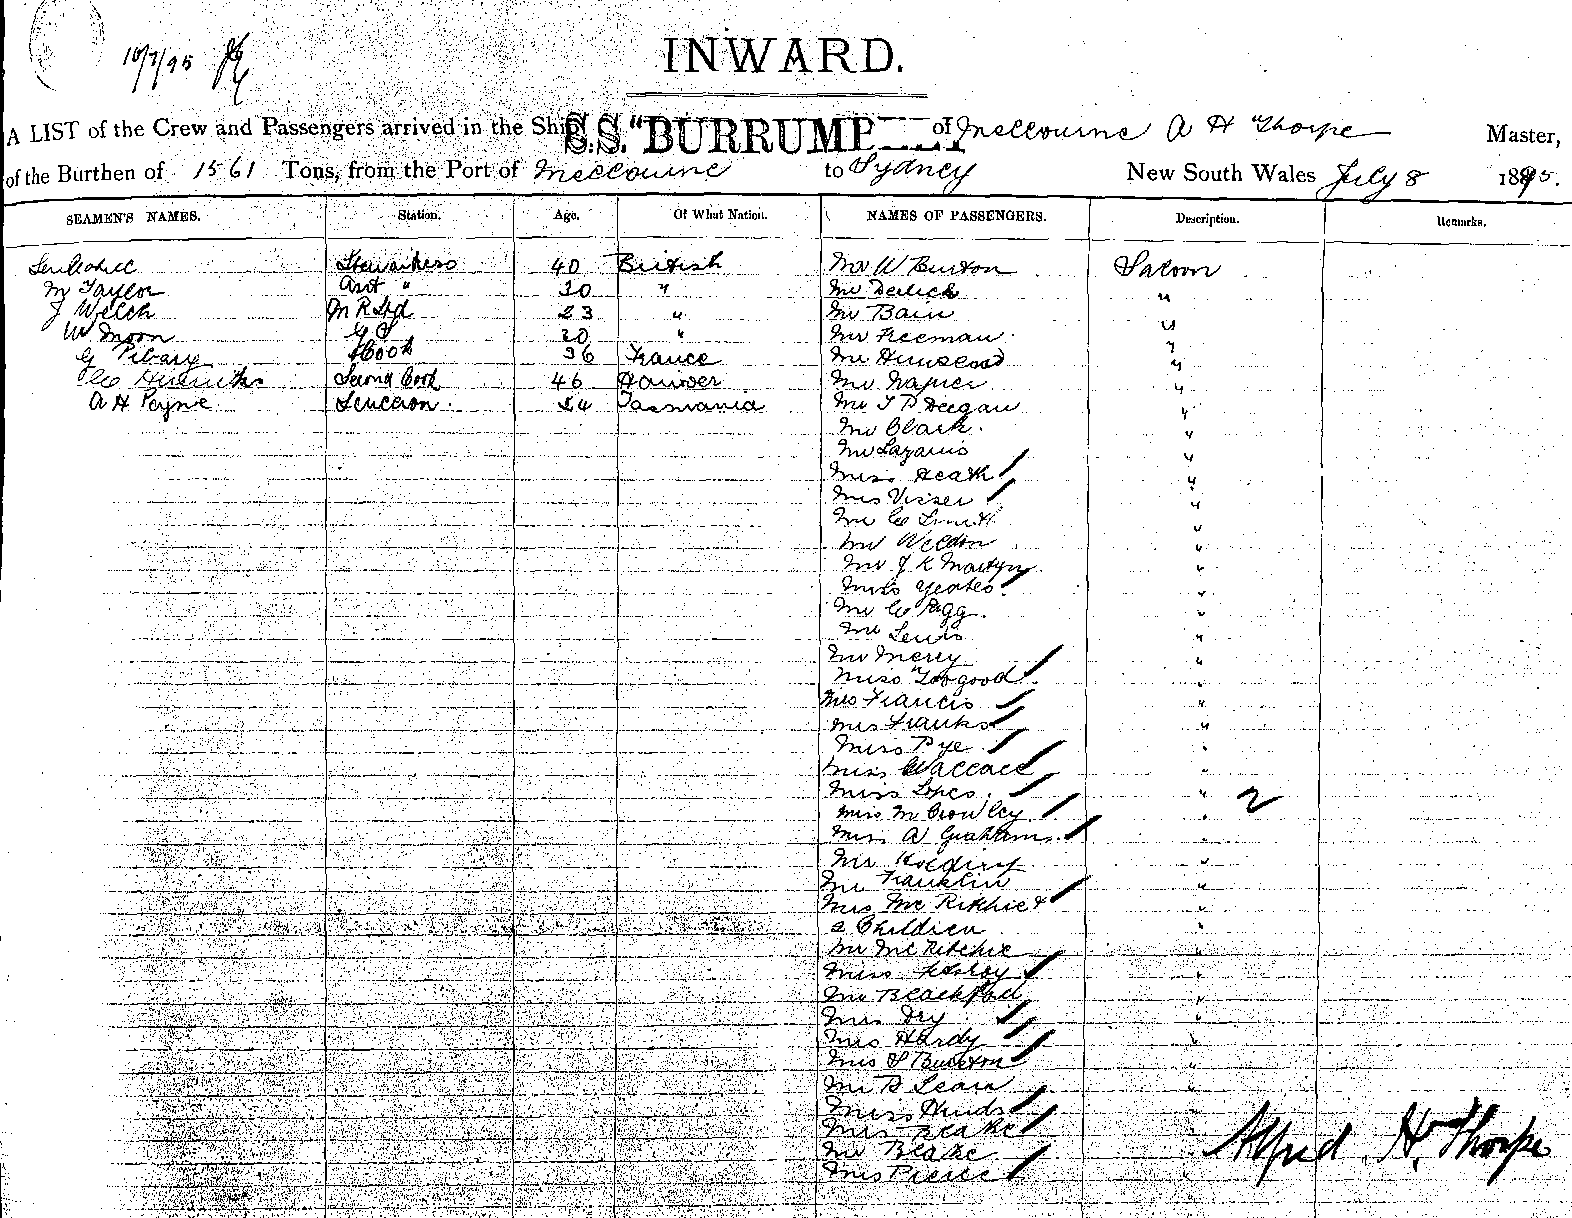 10/7/95
INWARD.
A LIST of the Crew and Passengers arrived in the Ship S.S. "BURRUMB of Melbourne A H Thorpe Master,
of the Burthen of 1561 Tons, from the Port of Melbourne to Sydney New South Wales July 8 1895.
SEAMEN'S NAMES. Station. Age. Of What Nation. NAMES OF PASSENGERS. Description. Remarks.
Stewardess 40 British Mr W Burton Saloon
M Taylor Asst " 30 " Mr "
J Welch 23 " Mr Bain "
W Moon 20 " Mr Freeman "
G 36 France Mr "
Second Cook 46 Mr Napier "
A H Payne 24 Tasmania Mr T P Deegan "
Mr Clark "
Mr Lazarus "
Miss Heath "
Visser "
Mr C Smith "
Mr Weldon "
Mr J K Martyn "
Miss Yeates "
Mr C Pegg "
Mr Lewis "
Mr Mercy "
Miss Toogood "
Mrs Francis "
Mrs Franks "
Miss Pye "
Miss Wallace "
Miss Lopes " 2
Miss M Crowley "
Miss A Graham "
Mr Holding "
Mr Franklin "
Mrs Mc Ritchie & "
2 Children "
Mr Mc Ritchie "
Miss "
Mr "
Dry "
Hardy "
S Burton "
Mr "
Miss "
Blake
Mr Blake
Pierce
Alfred H. Thorpe